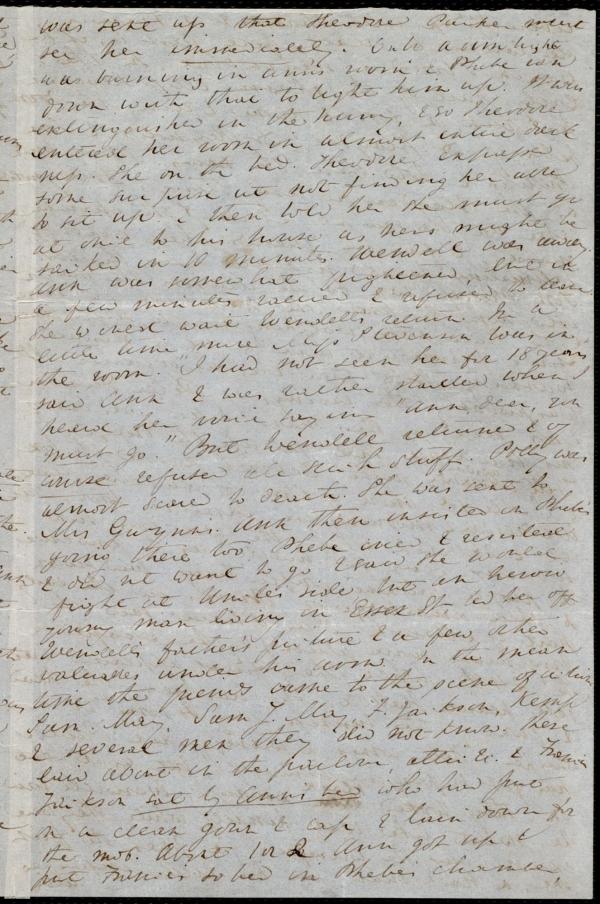 was sent up that Theodore Parker must
see her immediately. Only a dim light
was burning in Ann's room & Phebe ran
down with that to light him up. It was
extinguished in the hurry, & so Theodore
entered her room in almost entire dark
ness. She on the bed. Theodore expressed
some surprise at not finding her able
to sit up & then told her she must go
at once to his house as hers might be
sacked in 10 minutes. Wendell was away.
Ann was somewhat frightened, but in
a few minutes rallied & refused to leave
She would wait Wendell's return. In a
little time more Miss Stevenson was in
the room. "I had not seen her for 18 years
said Ann & was rather startled when I
heard her voice saying "Ann dear, you
must go." But Wendell returned & of
course refused all such stuff. Polly was
almost scared to death. She was sent to
Mrs Gwynn's. Ann then insisted on Phebe's
going there too. Phebe cried & resisted
& did not want to go & said she would
fight at Uncle's side but an heroic
young man living in Essex St. led her off
Wendell's father's picture & a few other
valuables under his arm. In the mean
time the friends came to the scene of action
Sam. May, Sam J. May, F. Jackson, Kemp
& several men they did not know. These
laid about in the parlour, attic &c. & Francis
Jackson sat by Ann's bed who had put
on a clean gown & cap & laid down for
the mob. About 1 or 2 Ann got up &
put Francis to bed in Phebe's chamber,